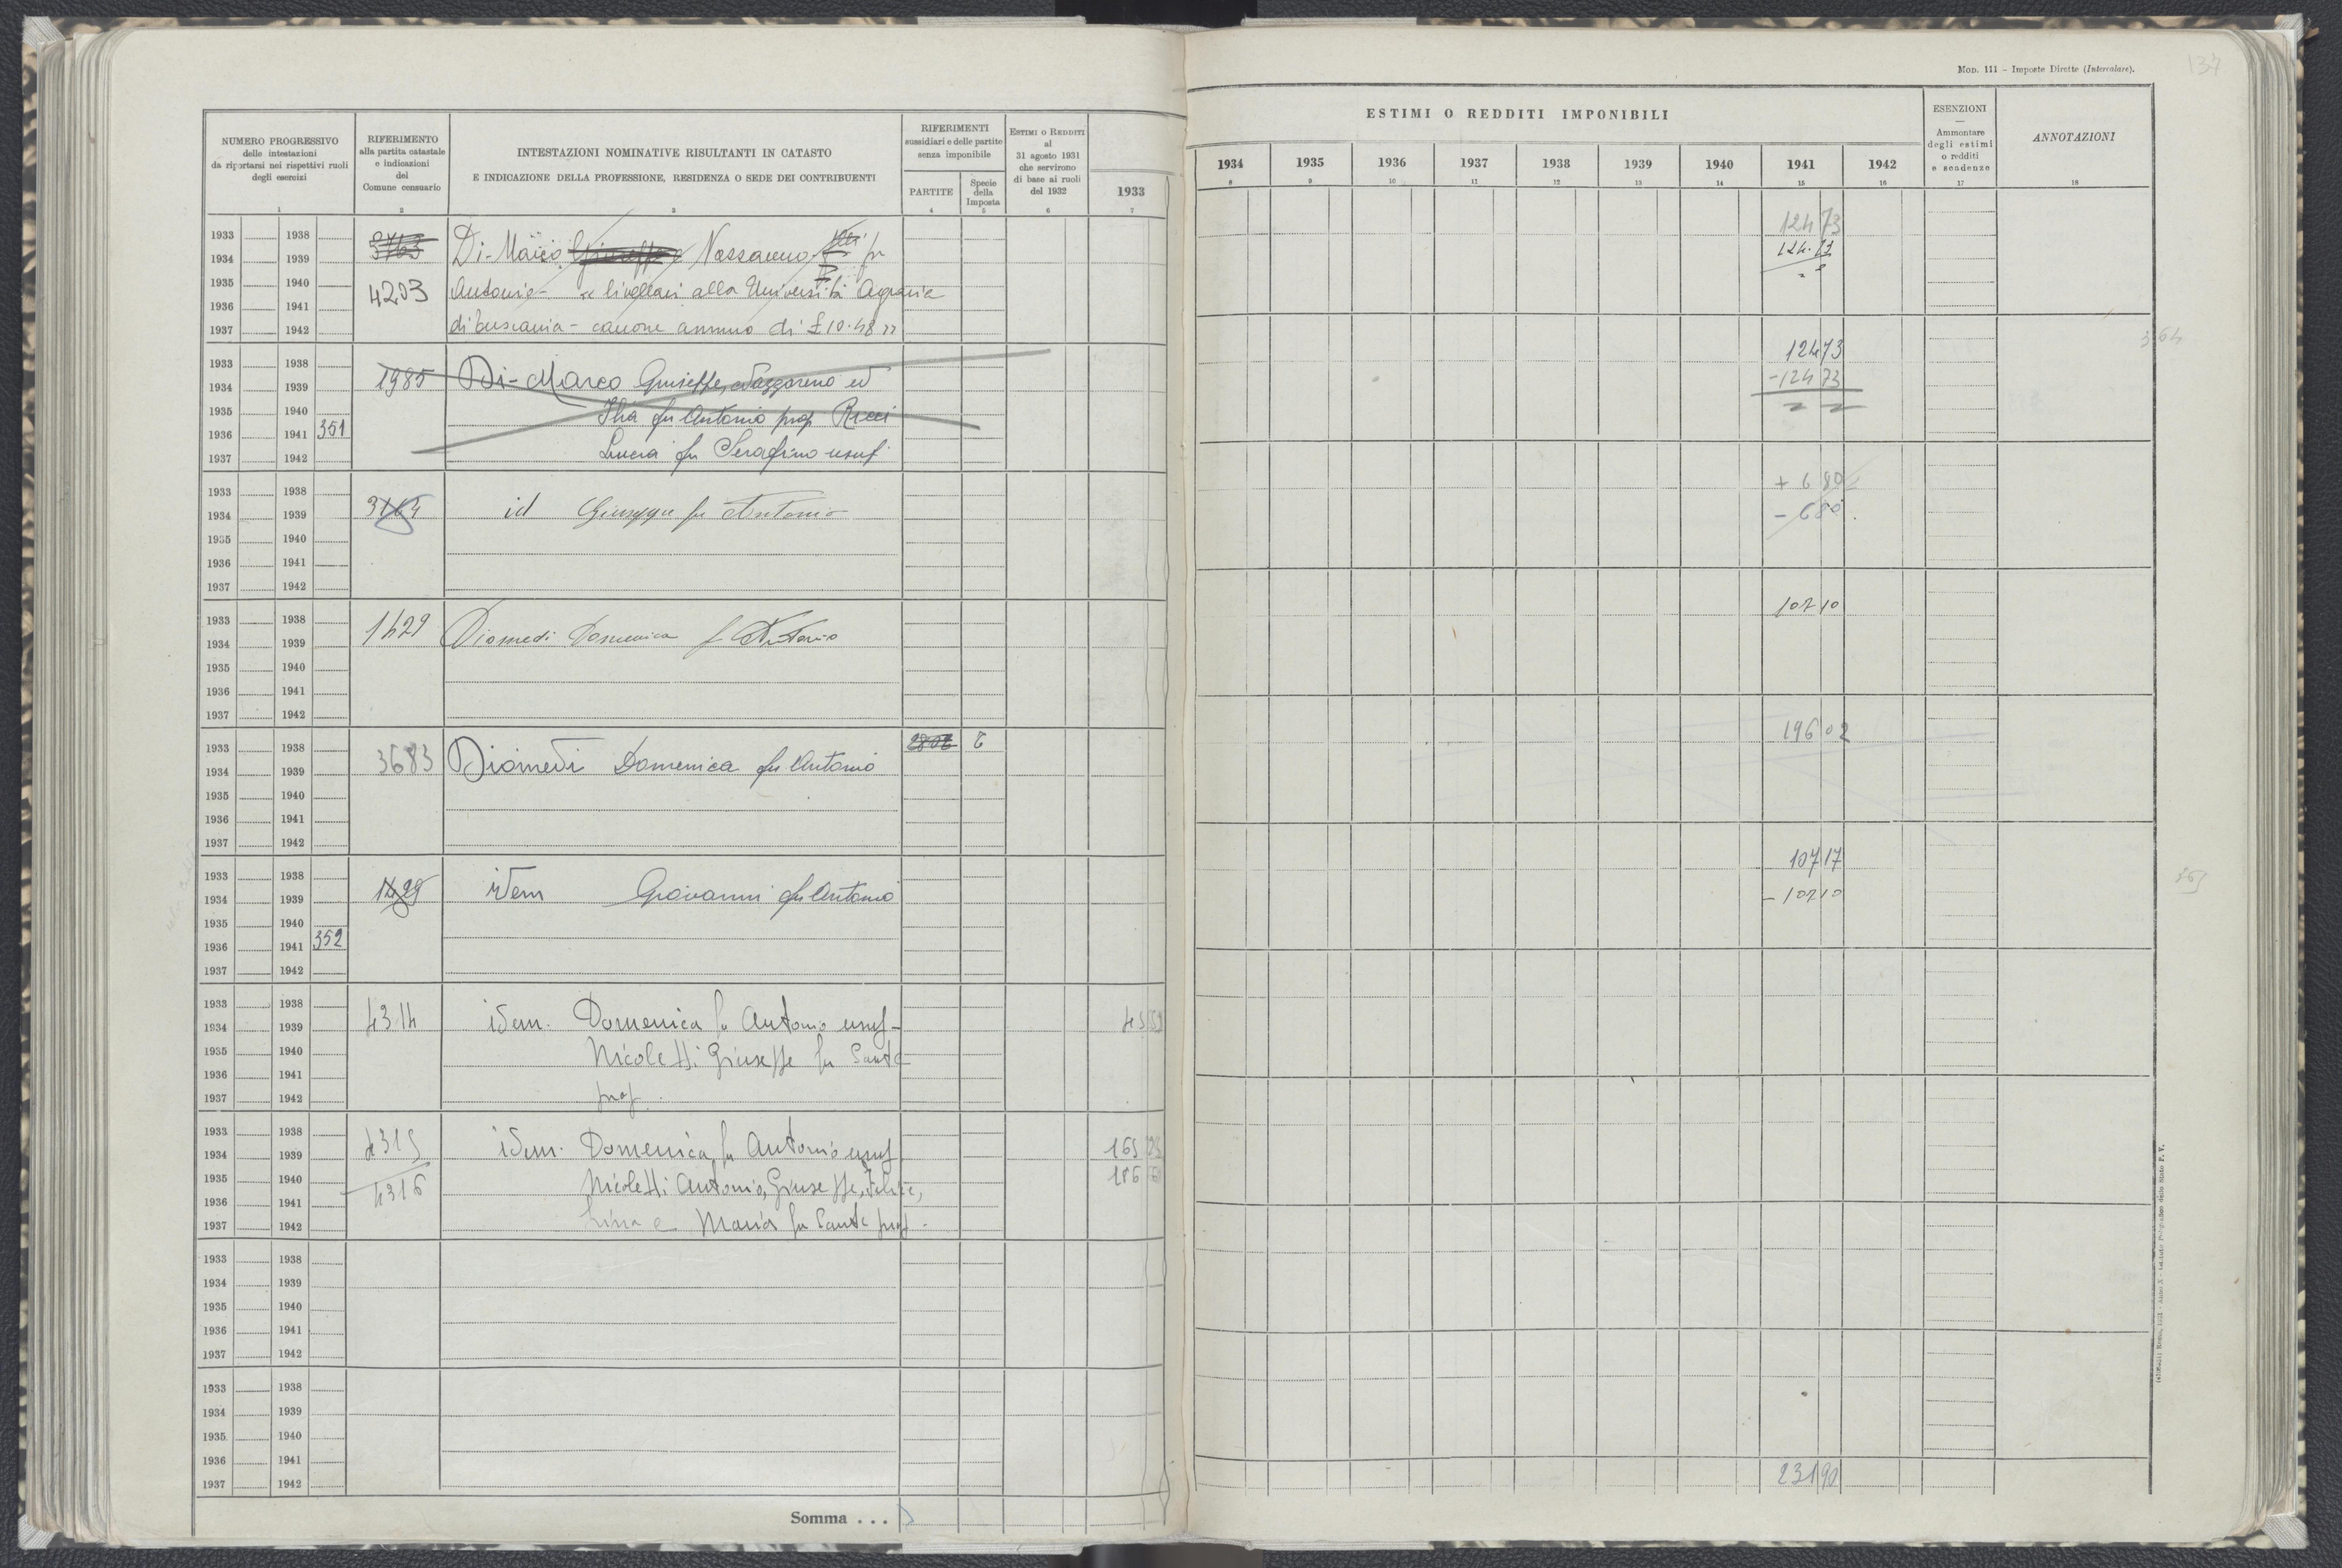 Mod. 111 – Imposte Dirette (Intercalare).
137
NUMERO PROGRESSIVO
delle intestazioni
da riportarsi nei rispettivi ruoli
degli esercizi
RIFERIMENTO
alla partita catastale
e indicazioni
del
Comune censuario
INTESTAZIONI NOMINATIVE RISULTANTI IN CATASTO
E INDICAZIONE DELLA PROFESSIONE, RESIDENZA O SEDE DEI CONTRIBUENTI
RIFERIMENTI
sussidiari e delle partite
senza imponibile
PARTITE
Specie
della
Imposta
ESTIMI O REDDITI
al
31 agosto 1931
che servirono
di base ai ruoli
del 1932
ESTIMI O REDDITI IMPONIBILI
1933 1934 1935 1936 1937 1938 1939 1940 1941 1942
ESENZIONI
—
Ammontare
degli estimi
o redditi
e scadenze
ANNOTAZIONI
1 2 3 4 5 6 7 8 9 10 11 12 13 14 15 16 17 18
1933 1938 3763 124 73
1934 1939 Di-Marco Giuseppe Nazzareno fu 124.73
1935 1940 4203 Antonio - « livellari alla Università Agraria
1936 1941
1937 1942 di - canone annuo di £ 10.48 »
1933 1938 124 73
1934 1939 1985 Di-Marco Giuseppe, Nazzareno ed -124 73
1935 1940 Ilia fu Antonio prop Ricci
1936 1941 351
1937 1942 Lucia fu Serafino usuf.
364
1933 1938 + 6 80
1934 1939 3764 id Giuseppe fu Antonio - 6 80
1935 1940
1936 1941
1937 1942
1933 1938 107 10
1934 1939 1429 Diomedi Domenica f Antonio
1935 1940
1936 1941
1937 1942
1933 1938 2802 196 02
1934 1939 3683 Diomedi Domenica fu Antonio
1935 1940
1936 1941
1937 1942
1933 1938 107 17
1934 1939 1429 idem Giovanni fu Antonio - 107 10
1935 1940
1936 1941 352
1937 1942
1933 1938
1934 1939 4314 idem. Domenica fu Antonio usuf-
1935 1940 Nicoletti Giuseppe fu Sante
1936 1941
1937 1942 prop.
1933 1938 4315
1934 1939 idem. Domenica fu Antonio usuf 165
1935 1940 4316 Nicoletti Antonio, Giuseppe, Felice, 186
1936 1941
1937 1942 Lina e Maria fu Sante prop.
1933 1938
1934 1939
1935 1940
1936 1941
1937 1942
1933 1938
1934 1939
1935 1940
1936 1941
1937 1942 231 90
Somma . . .